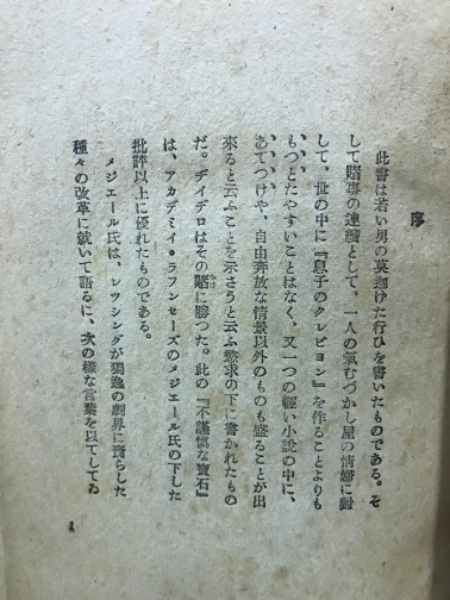 序
此書は若い男の莫迦げた行ひを書いたものである。そ
して賭事の連續として、一人の氣むづかし屋の情婦に對
して、世の中に『息子のクレビヨン』を作ることよりも
もつとたやすいことはなく、又一つの輕い小說の中に、
あてつけや、自由奔放な情景以外のものも盛ることが出
來ると云ふことを示さうと云ふ慾求の下に書かれたもの
だ。ヂイデロはその賭に勝つた。此の『不謹愼な寶石』
は、アカデミイ・ラフンセーズのメジエール氏の下した
批評以上に優れたものである。
メジエール氏は、レツシングが獨逸の劇界に齎らした
種々の改革に就いて語るに、次の樣な言葉を以てしてゐ
1